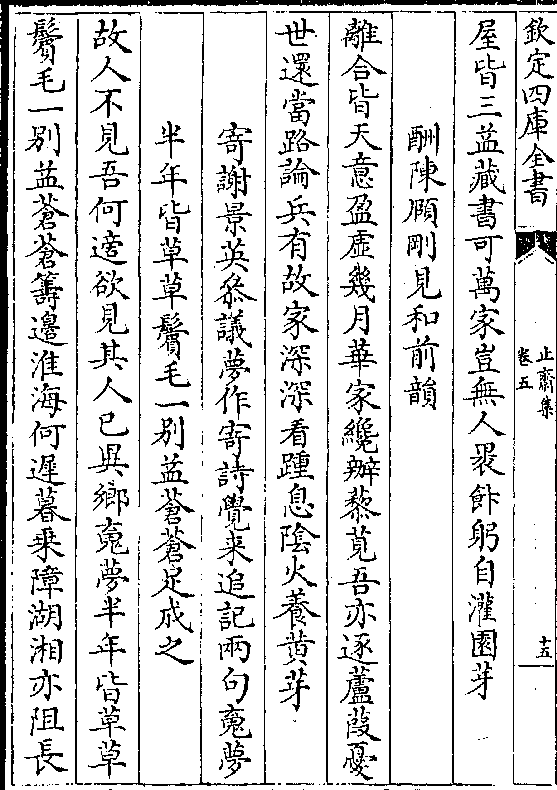 欽定四庫全書
止齋集
卷五
十五
屋皆三益藏書可萬家豈無人裹飰躬自灌園芽
酬陳頋剛見和前韻
離合皆天意盈虛幾月華家纔辦藜莧吾亦逐蘆葭憂
世還當路論兵有故家深深看踵息陰火養黄芽
寄謝景英叅議夢作寄詩覺来追記兩句夐夢
半年皆草草鬢毛一别益蒼蒼足成之
故人不見吾何适欲見其人已異鄉夐夢半年皆草草
鬢毛一别益蒼蒼籌邊淮海何遲暮乗障湖湘亦阻長